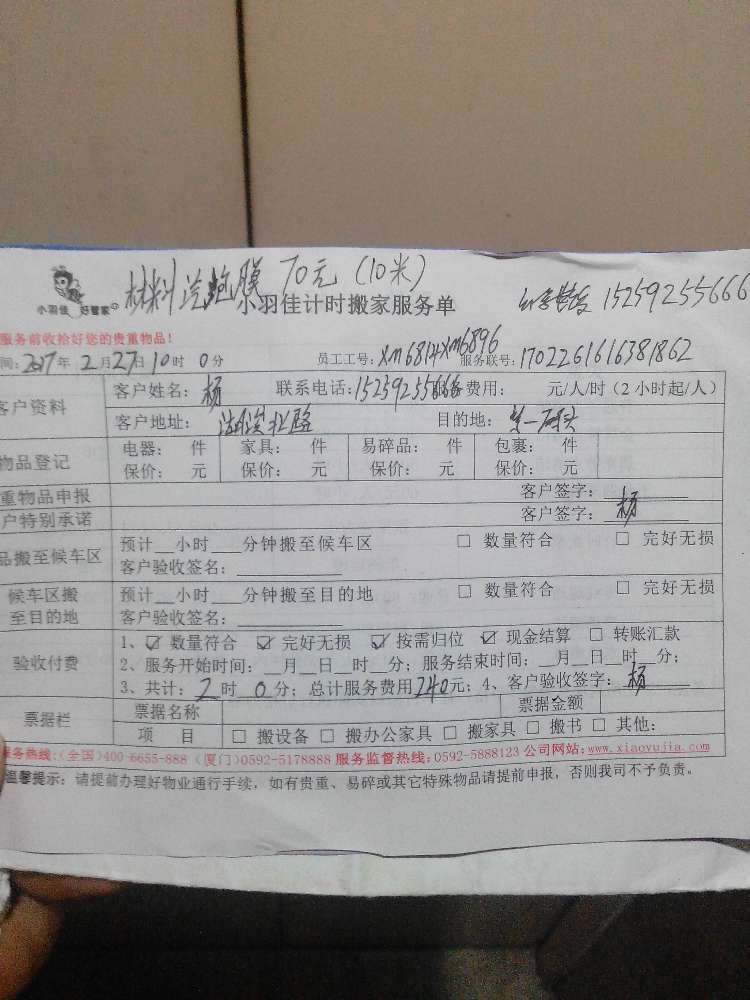 材料 泡膜 70元 (10米)
小羽佳 好管家
小羽佳计时搬家服务单
15259255666
服务前收拾好您的贵重物品!
间: 2017年 2月27日10时 0分 员工工号: xm6814xm6896 服务联号: 1702261616381862
客户资料 客户姓名: 杨 联系电话: 15259255666 服务费用: 元/人/时 (2 小时起/人)
客户地址: 湖滨北路 目的地: 第一码头
物品登记 电器: 件 家具: 件 易碎品: 件 包裹: 件
保价: 元 保价: 元 保价: 元 保价: 元
重物品申报 客户签字:
户特别承诺 客户签字: 杨
品搬至候车区 预计__小时___分钟搬至候车区 □ 数量符合 □ 完好无损
客户验收签名:
候车区搬至目的地 预计__小时___分钟搬至目的地 □ 数量符合 □ 完好无损
客户验收签名:
验收付费 1、☑ 数量符合 ☑ 完好无损 ☑ 按需归位 ☑ 现金结算 □ 转账汇款
2、服务开始时间: __月__日__时__分; 服务结束时间: __月__日__时__分;
3、共计: 2 时 0 分; 总计服务费用 240 元; 4、客户验收签字: 杨
票据栏 票据名称 票据金额
项 目 □ 搬设备 □ 搬办公家具 □ 搬家具 □ 搬书 □ 其他:
服务热线:(全国)400-6655-888 (厦门)0592-5178888 服务监督热线:0592-5888123 公司网站:www.xiaoyujia.com
温馨提示: 请提前办理好物业通行手续, 如有贵重、易碎或其它特殊物品请提前申报, 否则我司不予负责。